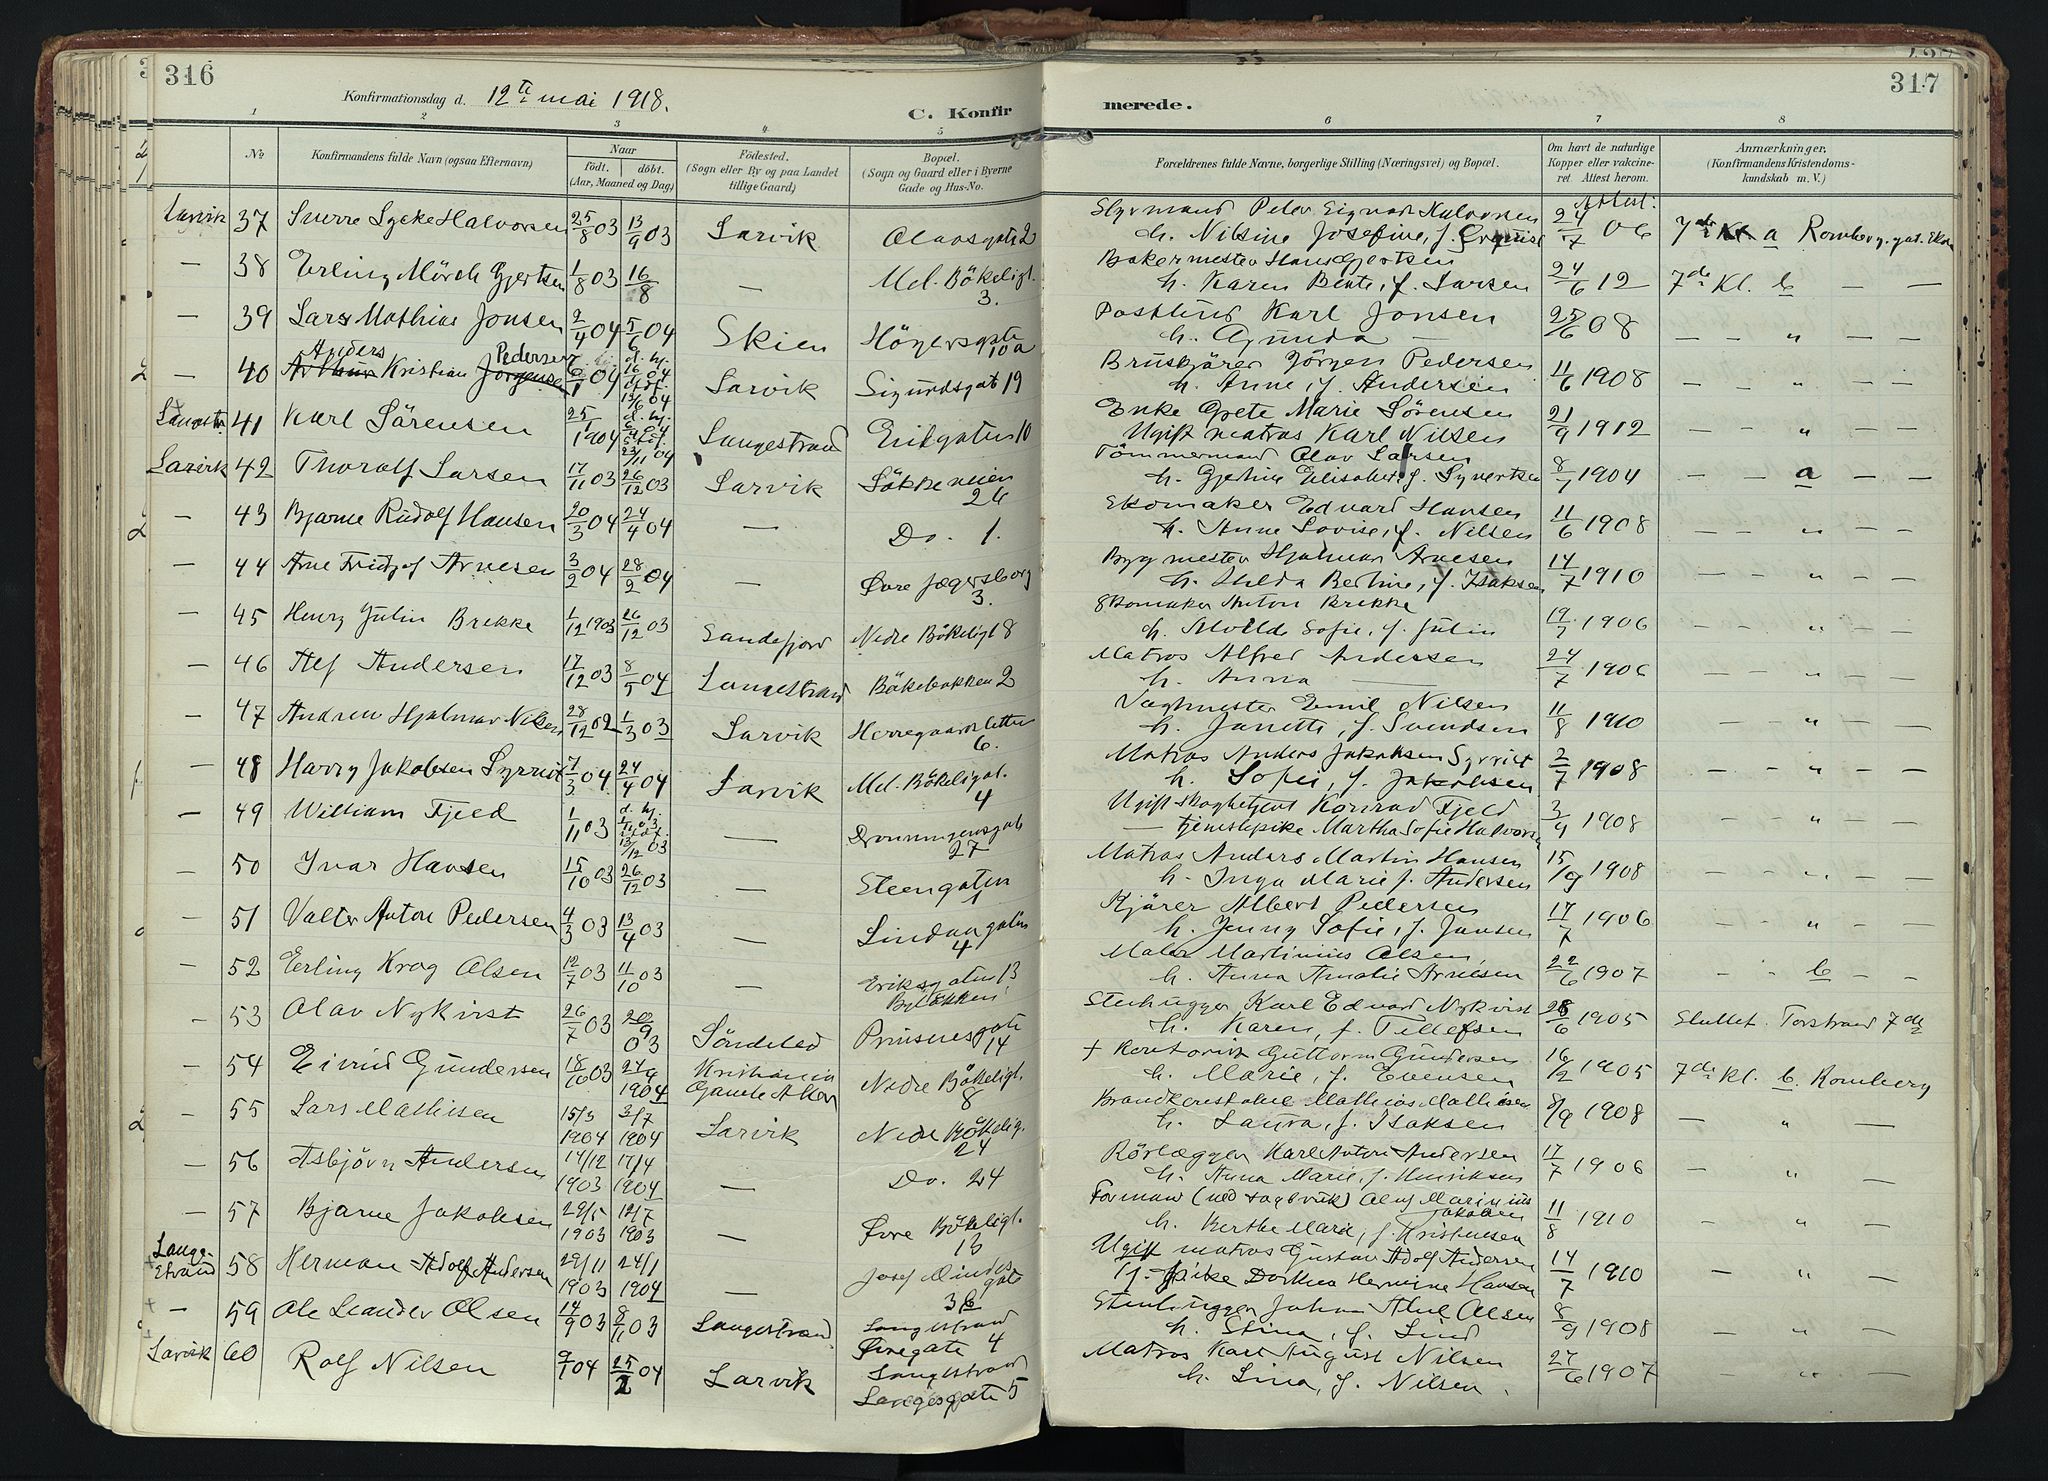 316
Konfirmationsdag d. 12te mai 1918.
C. Konfir
1 2 3 4 5
No
Konfirmandens fulde Navn (ogsaa Efternavn)
Naar
født. døbt.
(Aar, Maaned og Dag)
Fødested.
(Sogn eller By og paa Landet
tillige Gaard)
Bopæl.
(Sogn og Gaard eller i Byerne
Gade og Hus-No.
Larvik 37 Halvorsen 25/8 03 13/9 03 Larvik Olavsgate 2
— 38 Erling Mörch Gjertsen 1/8 03 16/8 — Mel. Bökeligt. 3.
— 39 Lars Mathias Jonsen 2/4 04 5/6 04 Skien 10a
— 40 Anders Kristian Pedersen 04 Larvik Sigurdsgat 19
41 Karl Sörensen 25/1 1904 Langestrand 10
Larvik 42 Thoralf Larsen 17/11 03 26/12 03 Larvik
— 43 Bjarne Rudolf Hansen 20/3 04 24/4 04 — Do. 1.
— 44 Arne Arnesen 3/2 04 28/2 04 — Øvre Jægersborg 3.
— 45 Henry Julin Brekke 1/12 1903 26/12 03 Sandefjord Nedre Bökeligt 8
— 46 Alf Andersen 17/12 03 8/5 04 Langestrand Bökebakken 2
— 47 Hjalmar Nilsen 28/12 02 1/3 03 Larvik 6.
— 48 Harry Jakobsen 7/3 04 24/4 04 Larvik Mel. Bökeligat. 4
— 49 William Fjeld 1/11 03 — Dronningensgate 27
50 Ivar Hansen 15/10 03 26/12 03 — Steengaten 1
— 51 Valter Anton Pedersen 4/3 03 13/4 03 — 4
— 52 Erling Krog Olsen 12/7 03 11/10 03 — Eriksgaten 13
— 53 Olav Nykvist 26/7 03 20/9 03 Söndeled Prinsensgate 14
— 54 Eivind Gundersen 18/10 03 24/9 1904 Kristiania Gamle Aker Nedre Bökeligt. 8
— 55 Lars Mathisen 15/3 1904 3/7 1904 Larvik Nedre Bökelig. 24
— 56 Asbjörn Andersen 14/12 1903 17/4 1904 — Do. 24
— 57 Bjarne Jakobsen 29/5 1903 12/7 1903 — Øvre Bökeligt. 13
Lange-
strand 58 Herman Adolf Andersen 29/11 1903 24/1 1904 — Josef gate
— 59 Ole Leander Olsen 14/9 03 8/11 03 Langestrand Langestrand Øvregate 4
Larvik 60 Rolf Nilsen 04 25/2 04 Larvik Langestrand 5
317
merede.
6 7 8
Forældrenes fulde Navne, borgerlige Stilling (Næringsvei) og Bopæl.
Om havt de naturlige
Kopper eller vakcine-
ret Attest herom.
Anmærkninger.
(Konfirmandens Kristendoms-
kundskab m. V.)
Attest:
Styrmand Peter Sigvart Halvorsen
h. Nilsine Josefine, f. 24/7 06 7de Kl. a Romberg.
Bakermester Hans Gjertsen
h. Karen Bente, f. Larsen 24/6 12 7de Kl. b — —
Postbud Karl Jonsen
h. Agunda — 25/6 08 — — „ —
Jörgen Pedersen
h. Anne, f. Andersen 11/6 1908 — — „ — —
Enke Grete Marie Sørensen
Ugift matros Karl Nilsen 21/9 1912 — — „ — —
Tömmermand Olav Larsen
h. Elisabet, f. Syvertsen 8/7 1904 — — a — —
Skomaker Edvard Hansen
h. Anne Lovise, f. Nilsen 11/6 1908 — — „ — —
Bygmester Hjalmar Arnesen
h. Hulda Bertine, f. Isaksen 14/7 1910 — — „ — —
Skomaker Anton Brekke
h. Sofie, f. Julin 1906 — — „ — —
Matros Alfred Andersen
h. Anna — 24/7 1906 — — „ — —
Emil Nilsen
h. Janette, f. Svendsen 11/8 1910 — — „ — —
Matros Anders Jakobsen
h. Sofie, f. Jakobsen 2/7 1908 — — „ — —
Ugift Konrad Fjeld
— tjenestepike Martha Sofie Halvorsen 1908 — — „ — —
Matros Anders Martin Hansen
h. Inga Marie f. Andersen 15/9 1908 — — „ — —
Kjörer Albert Pedersen
h. Jenny Sofie, f. Jansen 17/7 1906 — — „ — —
Maler Martinius Olsen,
h. Anna Amalie Arnesen 22/6 1907 — — b — —
Stenhugger Karl Edvard Nykvist
h. Karen, f. Tellefsen 1905 Sluttet Torstrand 7de
+ Guttorm Gundersen
h. Marie, f. Evensen 16/2 1905 7de Kl. b. Romberg
Mathias Mathisen
h. Laura, f. Isaksen 8/9 1908 — „ —
Rörlægger Karl Anton Andersen
h. Anna Marie, f. Henriksen 17/7 1906 — „ —
Formand (ved sagbruk) Olaf Marinius Jakobsen
h. Berthe Marie, f. Kristensen 11/8 1910 — „ —
Ugift matros Gustav Adolf Andersen
pike Dorthea Hermine Hansen 14/7 1910 — „ —
Stenhugger Johan Olsen
h. Stina, f. Lind 8/9 1908 — „ —
Matros Karl August Nilsen
h. Lina, f. Nilsen. 27/6 1907 — „ —